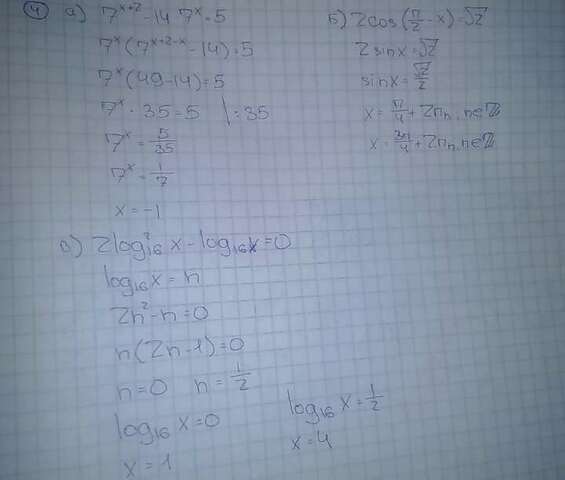 4 а) 7^(x+2) - 14 7^x = 5
7^x (7^(x+2-x) - 14) = 5
7^x (49 - 14) = 5
7^x · 35 = 5 | : 35
7^x = 5/35
7^x = 1/7
x = -1
Б) 2cos(π/2 - x) = √2
2 sinx = √2
sinx = √2/2
x = π/4 + 2πn, n∈Z
x = 3π/4 + 2πn, n∈Z
в) 2log²₁₆ x - log₁₆ x = 0
log₁₆ x = n
2n² - n = 0
n(2n - 1) = 0
n = 0 n = 1/2
log₁₆ x = 0
x = 1
log₁₆ x = 1/2
x = 4